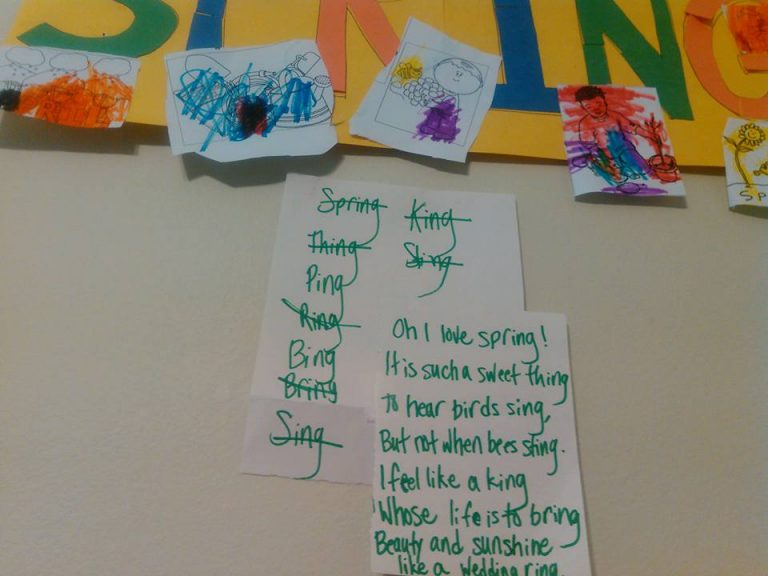 SPRING
Spring
Thing
Ping
Ring
Bing
Bring
Sing
King
Sting
Oh I love spring!
It is such a sweet thing
to hear birds sing,
But not when bees sting.
I feel like a king
Whose life is to bring
Beauty and sunshine
like a wedding ring.